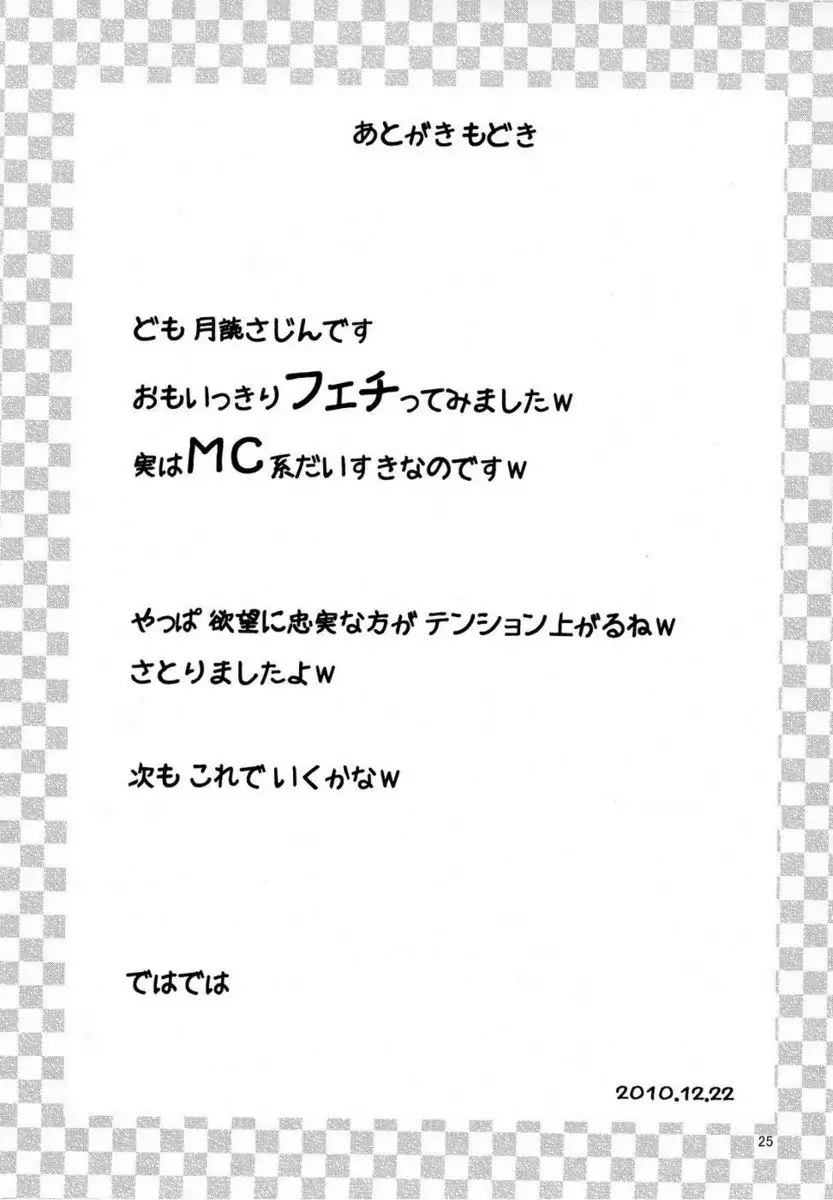 あとがきもどき
ども 月読さじんです
おもいっきりフェチってみましたw
実はMC系だいすきなのですw
やっぱ 欲望に忠実な方が テンション上がるねw
さとりましたよw
次も これで いくかなw
ではでは
2010.12.22
25